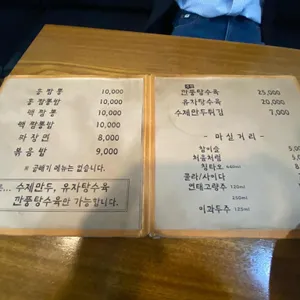 홍 짬 뽕 10,000
홍 짬뽕밥 10,000
백 짬 뽕 10,000
백 짬뽕밥 10,000
짜 장 면 8,000
볶 음 밥 9,000
※ 곱빼기 메뉴는 없습니다.
수제만두, 유자탕수육
깐풍탕수육만 가능합니다.
깐풍탕수육 25,000
유자탕수육 20,000
수제만두튀김 7,000
- 마 실 거 리 -
참이슬 5,0
처음처럼 5,0
칭타오 640ml 8
콜라/사이다
연태고량주 125ml
250ml
이과두주 125ml